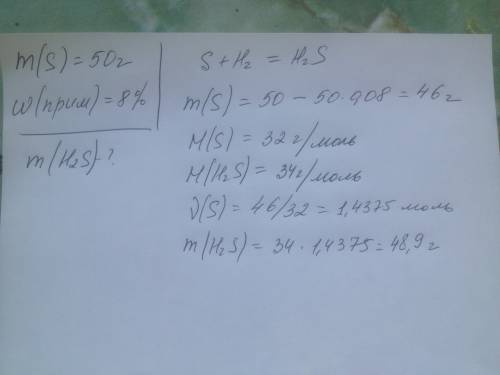 m(S) = 50г
ω(прим) = 8%
m(H₂S) - ?
S + H₂ = H₂S
m(S) = 50 - 50 · 0,08 = 46 г
M(S) = 32 г/моль
M(H₂S) = 34 г/моль
ν(S) = 46/32 = 1,4375 моль
m(H₂S) = 34 · 1,4375 = 48,9 г